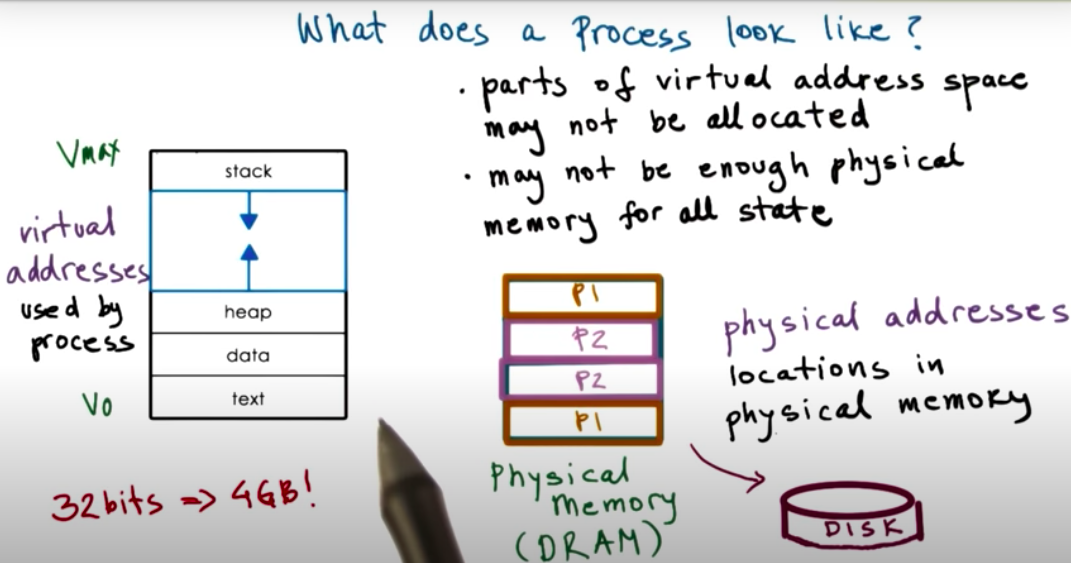 What does a Process look like?
• parts of virtual address space
may not be allocated
• may not be enough physical
memory for all state
Vmax
virtual
addresses
used by
process
V0
stack
heap
data
text
32bits => 4GB!
P1
P2
P2
P1
Physical
Memory
(DRAM)
physical addresses
locations in
physical memory
DISK